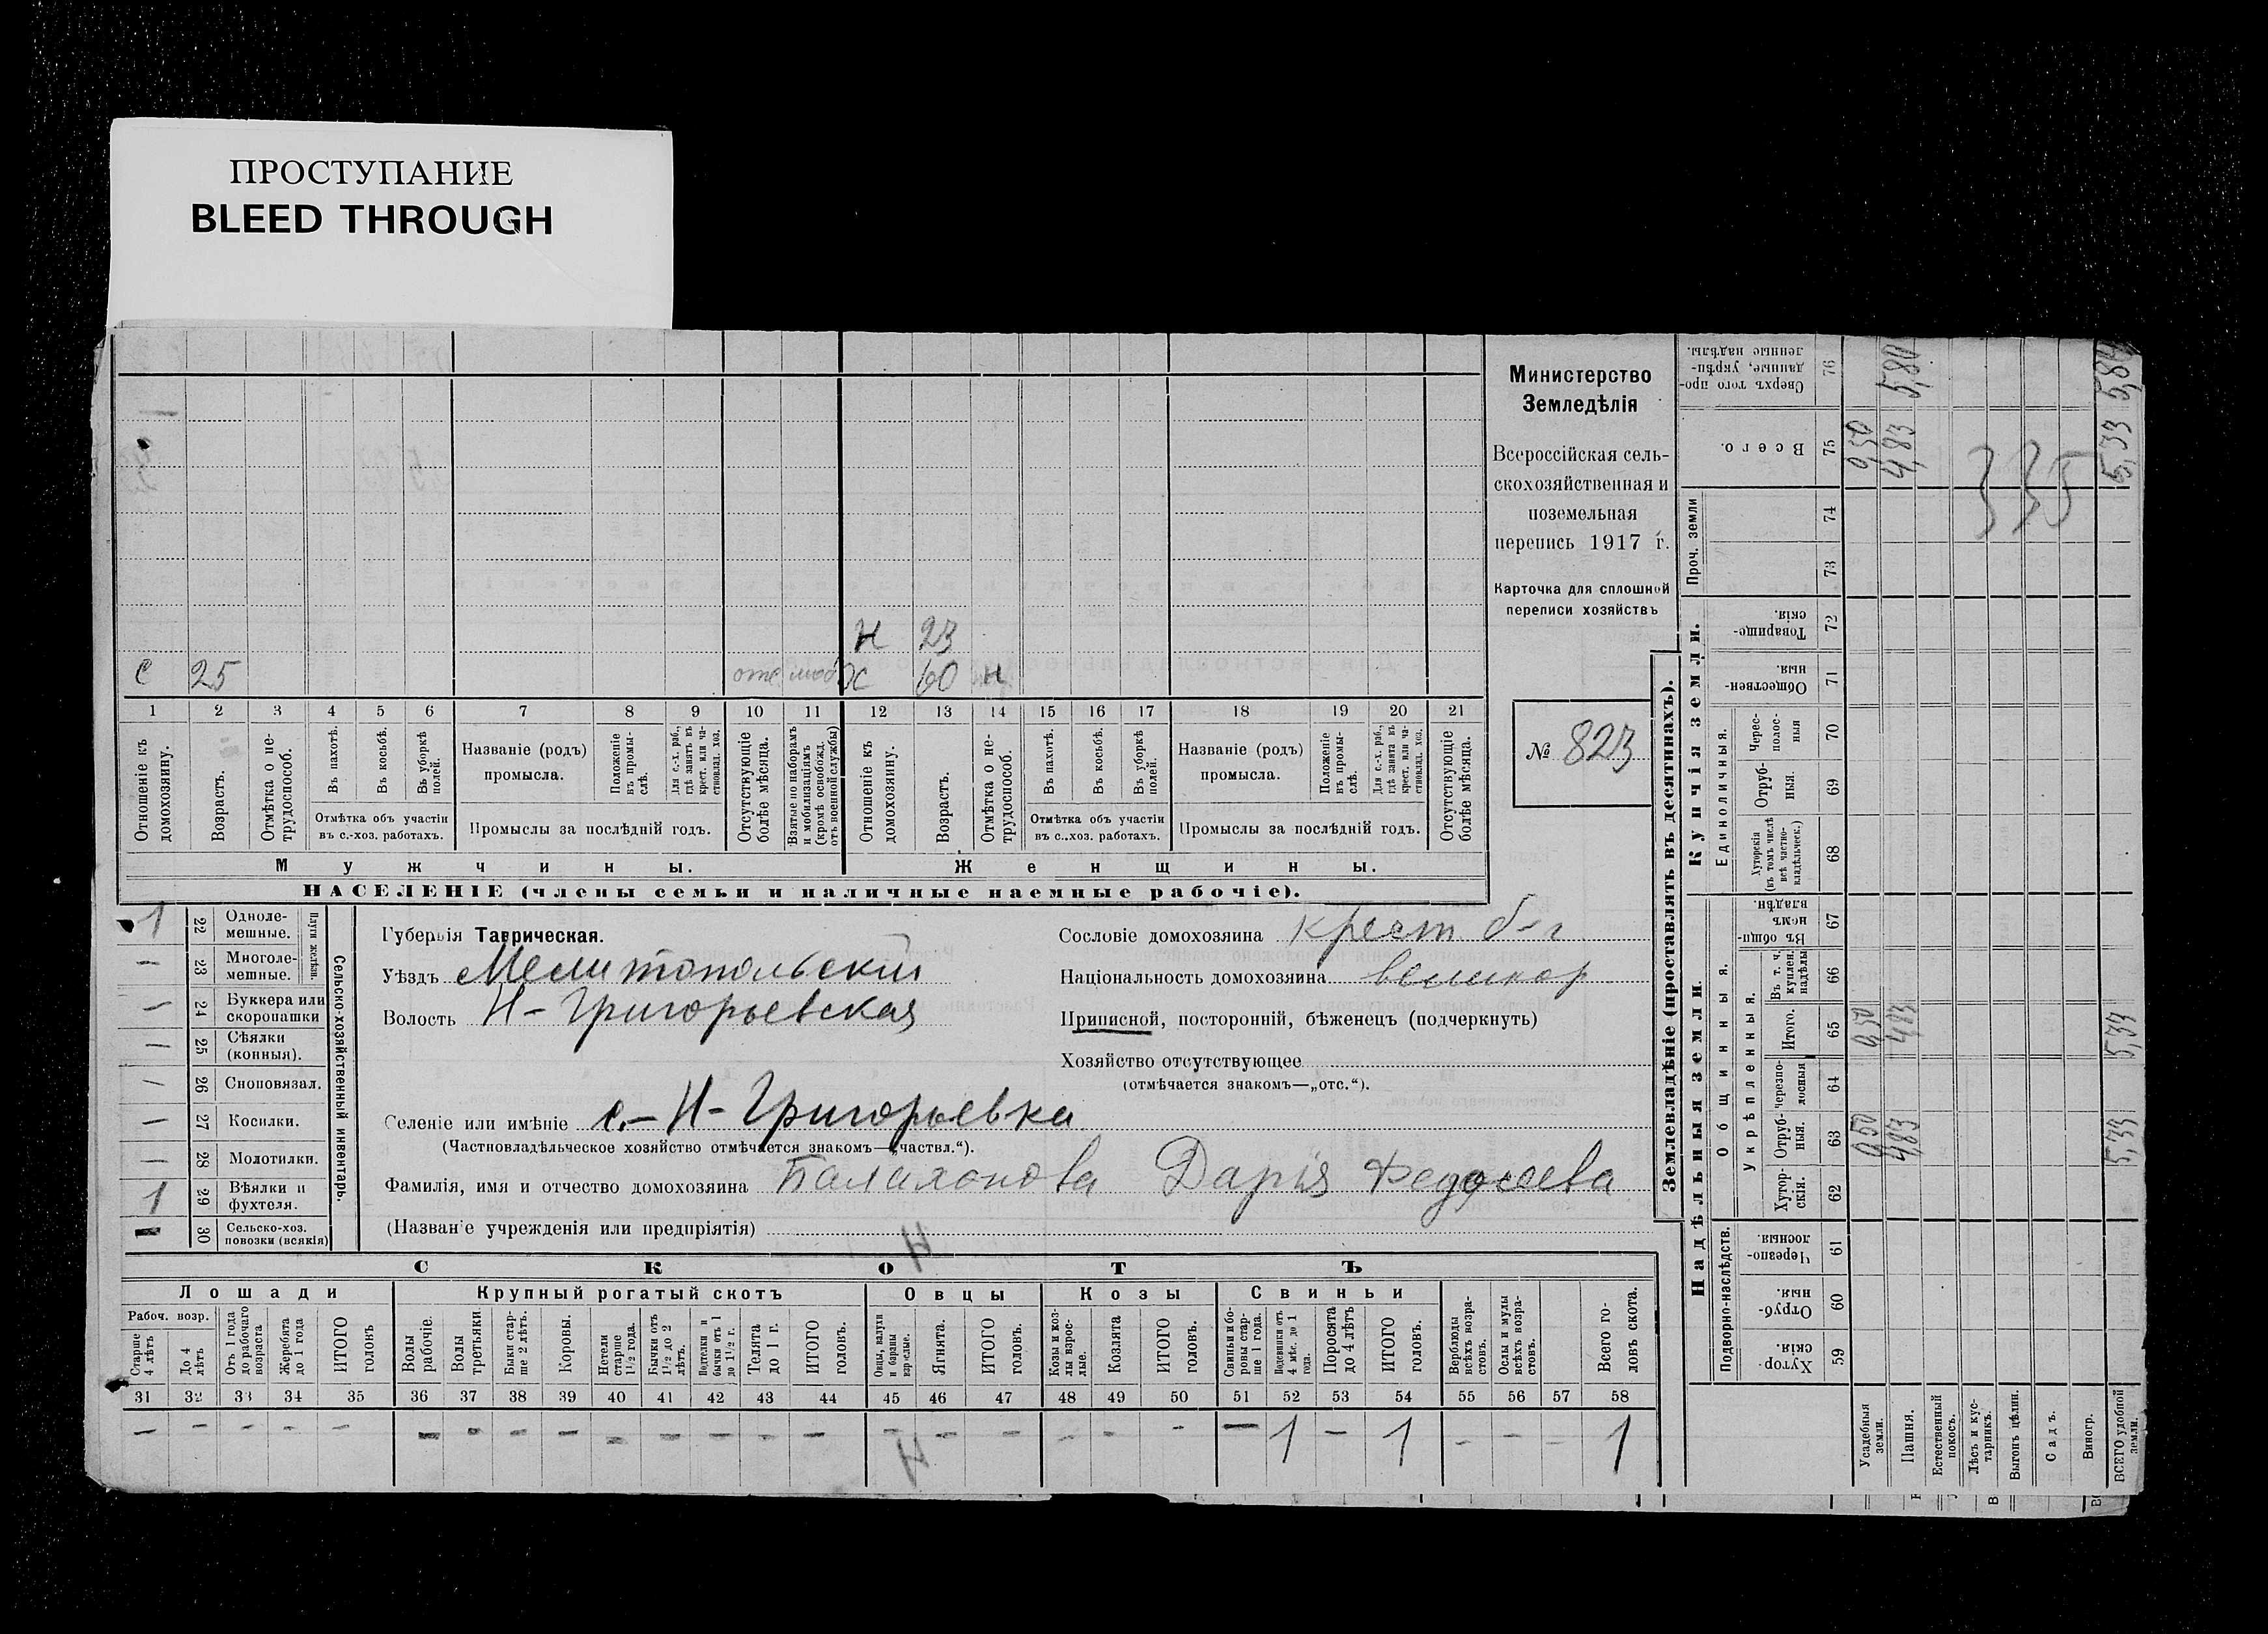 ПРОСТУПАНИЕ
BLEED THROUGH
Министерство
Земледѣлія
Всероссійская сель-
скохозяйственная и
поземельная
перепись 1917 г.
Карточка для сплошной
переписи хозяйствъ
№ 823
Н 23
С 25 Ж 60 н
1 2 3 4 5 6 7 8 9 10 11 12 13 14 15 16 17 18 19 20 21
Отношеніе къ домохозяину.
Возрастъ.
Отмѣтка о не-трудоспособ.
Въ пахотѣ.
Въ косьбѣ.
Въ уборкѣ полей.
Отмѣтка объ участіи
въ с.-хоз. работахъ.
Названіе (родъ)
промысла.
Положеніе въ промы-слѣ.
Для с.-х. раб., гдѣ занятъ въ крест. или ча-стновлад. хоз.
Промыслы за послѣдній годъ.
Отсутствующіе болѣе мѣсяца.
Взятые по наборамъ и мобилизаціямъ (кромѣ освобожд. отъ военной службы)
Отношеніе къ домохозяину.
Возрастъ.
Отмѣтка о не-трудоспособ.
Въ пахотѣ.
Въ косьбѣ.
Въ уборкѣ полей.
Отмѣтка объ участіи
въ с..хоз. работахъ.
Названіе (родъ)
промысла.
Положеніе въ промы-слѣ.
Для с.-х. раб., гдѣ занята въ крест. или ча-стновлад. хоз.
Промыслы за послѣдній годъ.
Отсутствующіе болѣе мѣсяца.
Мужчины. Женщины.
НАСЕЛЕНІЕ (члены семьи и наличные наемные рабочіе).
Сельско-хозяйственный инвентарь.
Плуги желѣзн.
1 22 Одноле-мешные.
— 23 Многоле-мешные.
— 24 Буккера или скоропашки
— 25 Сѣялки (конныя).
— 26 Сноповязал.
— 27 Косилки.
— 28 Молотилки.
1 29 Вѣялки и фухтеля.
— 30 Сельско-хоз. повозки (всякія)
Губернія Таврическая.
Уѣздъ Мелитопольскій
Волость Н-Григорьевская
Сословіе домохозяина крест. б-г
Національность домохозяина великор
Приписной, посторонній, бѣженецъ (подчеркнуть)
Хозяйство отсутствующее
(отмѣчается знакомъ—„отс.“).
Селеніе или имѣніе с.- Н-Григорьевка
(Частновладѣльческое хозяйство отмѣчается знакомъ—„частвл.“).
Фамилія, имя и отчество домохозяина Балахонова Дарія Федосеева
(Названіе учрежденія или предпріятія)
СКОТЪ
Лошади Крупный рогатый скотъ Овцы Козы Свиньи
Рабоч. возр.
Старше 4 лѣтъ
До 4 лѣтъ
Отъ 1 года до рабочаго возраста
Жеребята до 1 года
ИТОГО головъ
Волы рабочіе.
Волы третьяки.
Быки стар-ше 2 лѣтъ.
Коровы.
Нетели старше 1½ года.
Бычки отъ 1½ до 2 лѣтъ.
Подтелки и бычки отъ 1 до 1½ г.
Телята до 1 г.
ИТОГО головъ.
Овцы, валухи и бараны взрослые.
Ягнята.
ИТОГО головъ.
Козы и коз-лы взрос-лые.
Козлята
ИТОГО головъ.
Свиньи и бо-ровы стар-ше 1 года.
Подсвинки отъ 4 мѣс. до 1 года.
Поросята до 4 лѣтъ
ИТОГО головъ.
Верблюды всѣхъ возра-стовъ.
Ослы и мулы всѣхъ возра-стовъ.
Всего го-ловъ скота.
31 32 33 34 35 36 37 38 39 40 41 42 43 44 45 46 47 48 49 50 51 52 53 54 55 56 57 58
— — — — — — — — — — — — — — — — — — — — — 1 — 1 — — — 1
Землевладѣніе (проставлять въ десятинахъ).
Надѣльныя земли. Купчія земли. Проч. земли
Подворно-наслѣдств.
Общинныя.
Укрѣпленныя.
Единоличныя.
Хутор-скія. 59
Отруб-ныя. 60
Черезпо-лосныя. 61
Хутор-скія. 62
Отруб-ныя. 63
Черезпо-лосныя 64
Итого. 65
Въ т. ч. куплен. надѣлы 66
Въ общин-номъ владѣн. 67
Хуторскія (въ томъ числѣ всѣ частно-владѣльческ.) 68
Отруб-ныя. 69
Черес-полос-ныя 70
Обществен-ныя 71
Товарище-скія. 72
73
74
Всего. 75
Сверхъ того про-данные, укрѣп-ленные надѣлы. 76
Усадебныя земли. 0,50 0,50 0,50
Пашня. 4,83 4,83 4,83 5,80
Естественный покосъ.
Лѣсъ и кус-тарникъ.
Выгонъ цѣлин.
Садъ.
Виногр.
ВСЕГО удобной земли. 5,33 5,33 5,33
335